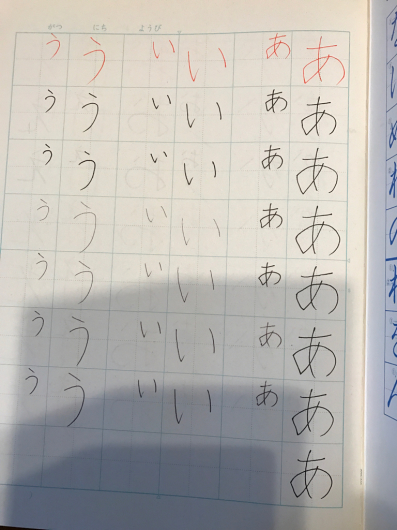 がつ にち ようび
ああああああああ
あああああああ
いいいいいいい
いいいいいいい
ううううううう
ううううううう